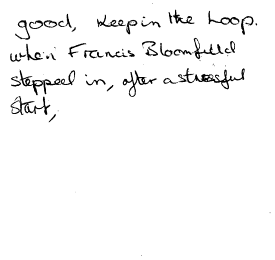 good, keep in the loop.
when Francis Bloomfield
stepped in, after a stressful
start,